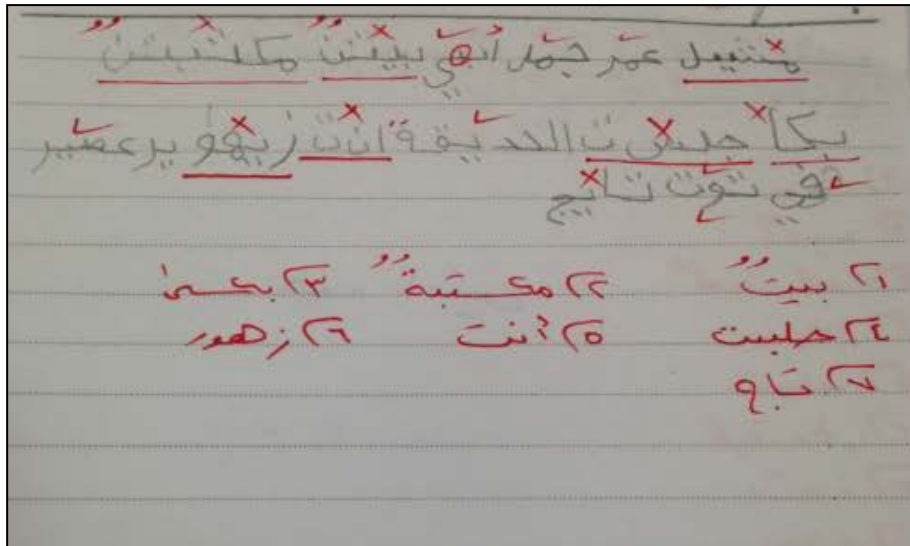 منديل عمر جمل أبي بيتنٌ مكتبتنٌ
بكا جلس ت الحديقة أنت زيهو ير عصير
في توت تايج
١) بيتٌ ٢) مكتبةٌ ٣) بكى
٤) جلست ٥) أنت ٦) زهور
٧) تاج